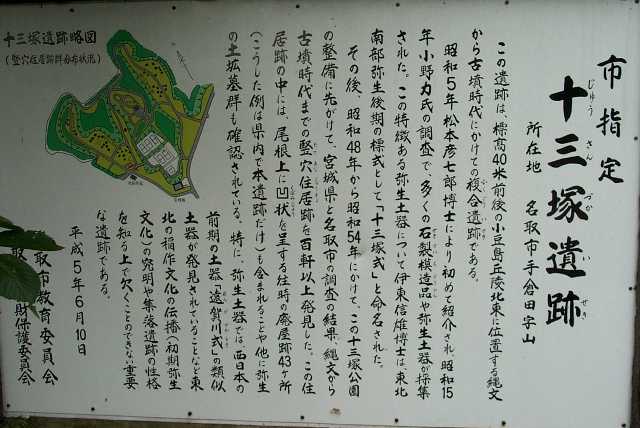 市指定
十三塚遺跡
じゅうさんづかいせき
所在地　名取市手倉田字山
この遺跡は、標高40米前後の小豆島丘陵北東に位置する縄文
から古墳時代にかけての複合遺跡である。
昭和5年松本彦七郎博士により初めて紹介され、昭和15
年小野力氏の調査で、多くの石製模造品や弥生土器が採集
された。この特徴ある弥生土器について伊東信雄博士は、東北
南部弥生後期の標式として「十三塚式」と命名された。
その後、昭和48年から昭和54年にかけて、この十三塚公園
の整備に先がけて、宮城県と名取市の調査の結果、縄文から
古墳時代までの竪穴住居跡を百軒以上発見した。この住
居跡の中には、尾根上に凹状を呈する往時の廃屋跡43ヶ所
（こうした例は県内で本遺跡だけ）も含まれることや他に弥生
の土拡墓群も確認されている。特に、弥生土器では、西日本の
前期の土器「遠賀川式」の類似
土器が発見されていることなど東
北の稲作文化の伝播（初期弥生
文化）の究明や集落遺跡の性格
を知る上で欠くことのできない重要
な遺跡である。
平成5年6月10日
取市教育委員会
取　財保護委員会
十三塚遺跡略図
（竪穴住居跡群分布状況）